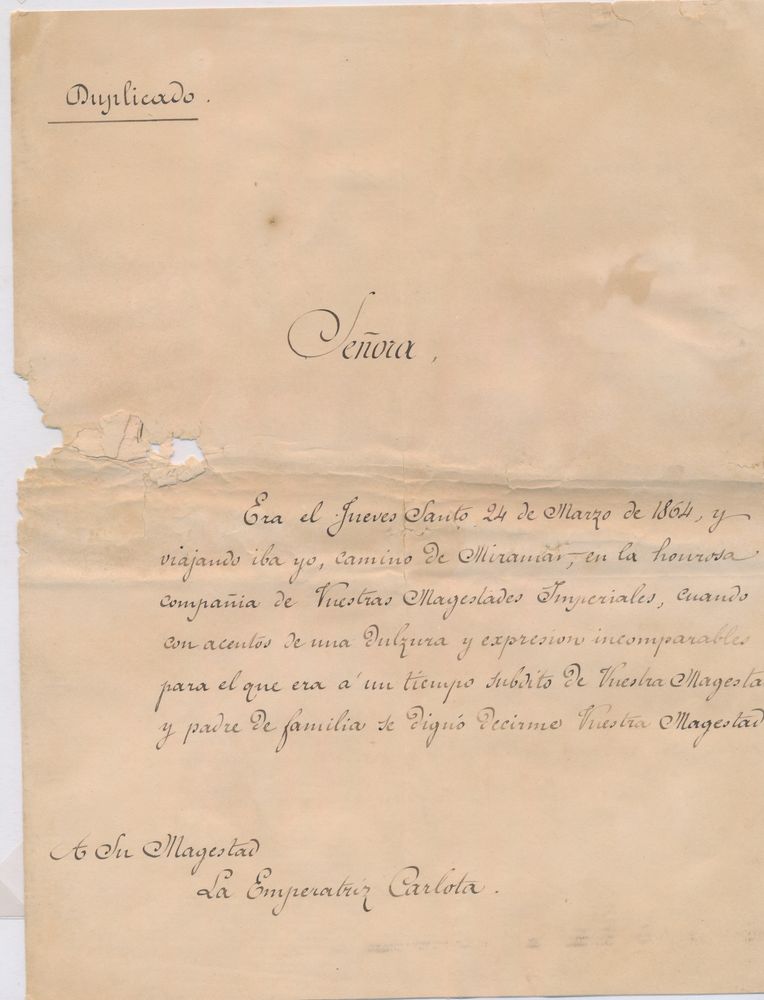 Duplicado.
Señora,
Era el Jueves Santo 24 de Marzo de 1864, y
viajando iba yo, camino de Miramar, en la honrosa
compañia de Vuestras Magestades Imperiales, cuando
con acentos de una dulzura y expresion incomparables
para el que era á un tiempo subdito de Vuestra Magesta
y padre de familia se dignó decirme Vuestra Magestad
A Su Magestad
La Emperatriz Carlota.